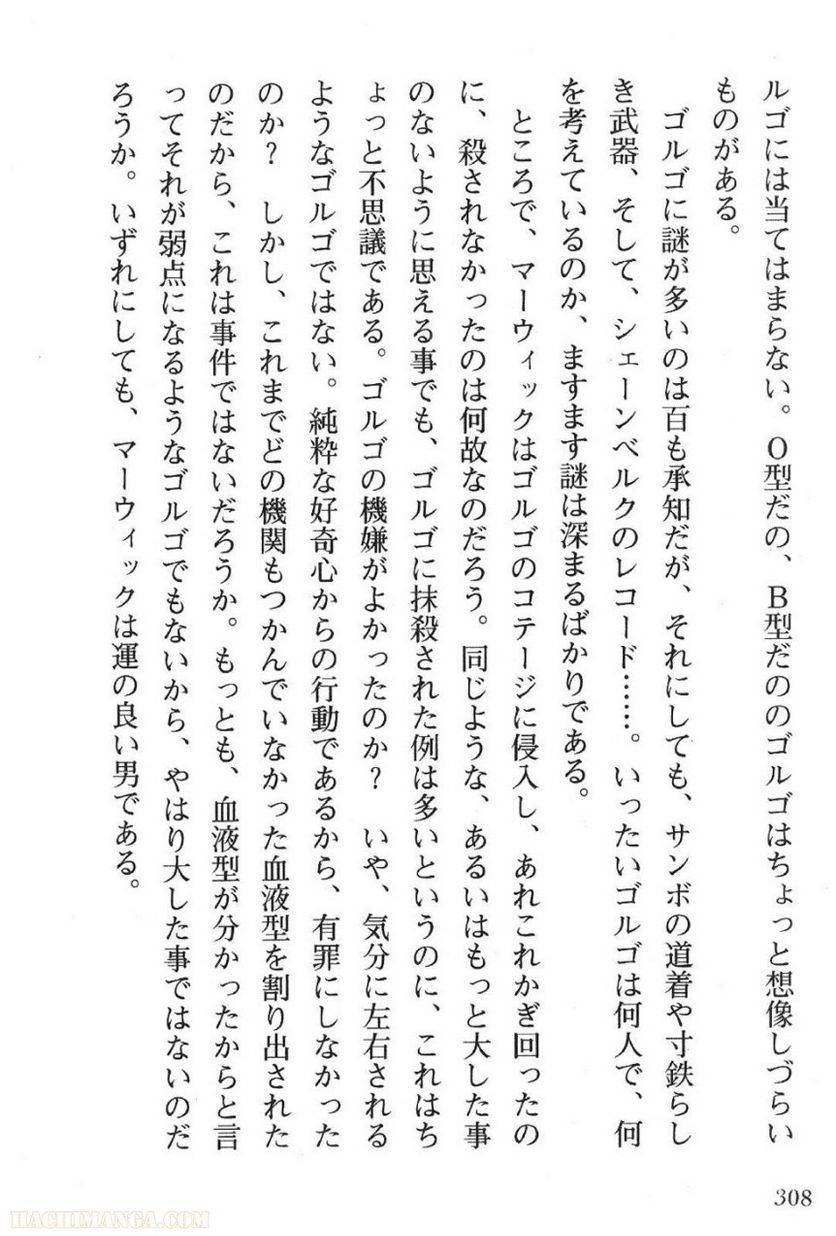 ルゴには当てはまらない。O型だの、B型だののゴルゴはちょっと想像しづらい
ものがある。
　ゴルゴに謎が多いのは百も承知だが、それにしても、サンボの道着や寸鉄らし
き武器、そして、シェーンベルクのレコード……。いったいゴルゴは何人で、何
を考えているのか、ますます謎は深まるばかりである。
　ところで、マーウィックはゴルゴのコテージに侵入し、あれこれかぎ回ったの
に、殺されなかったのは何故なのだろう。同じような、あるいはもっと大した事
のないように思える事でも、ゴルゴに抹殺された例は多いというのに、これはち
ょっと不思議である。ゴルゴの機嫌がよかったのか？　いや、気分に左右される
ようなゴルゴではない。純粋な好奇心からの行動であるから、有罪にしなかった
のか？　しかし、これまでどの機関もつかんでいなかった血液型を割り出された
のだから、これは事件ではないだろうか。もっとも、血液型が分かったからと言
ってそれが弱点になるようなゴルゴでもないから、やはり大した事ではないのだ
ろうか。いずれにしても、マーウィックは運の良い男である。
308
HACHIMANGA.COM